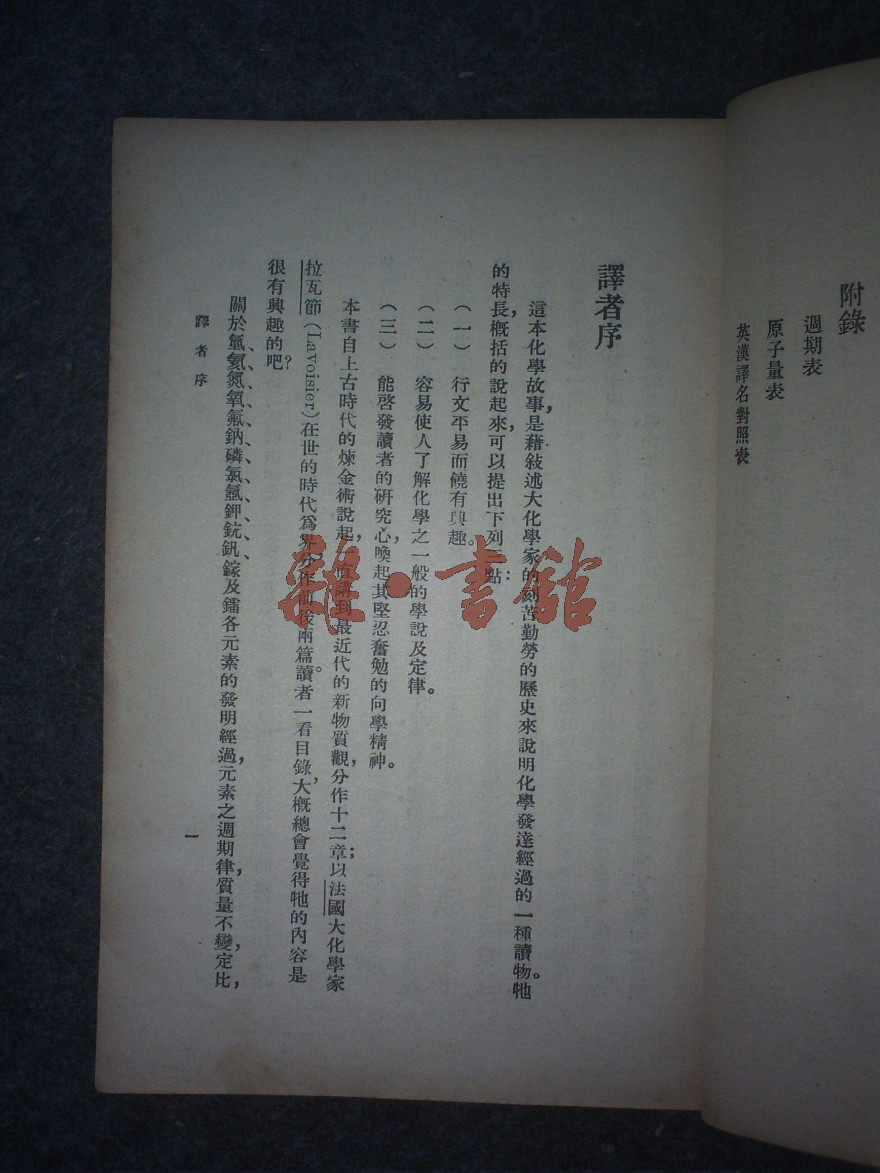 附錄
週期表
原子量表
英漢譯名對照表
譯者序
這本化學故事，是藉敍述大化學家的刻苦勤勞的歷史來說明化學發達經過的一種讀物。牠
的特長，概括的說起來，可以提出下列三點：
（一） 行文平易而饒有興趣。
（二） 容易使人了解化學之一般的學說及定律。
（三） 能啓發讀者的硏究心，喚起其堅忍奮勉的向學精神。
本書自上古時代的煉金術說起，直講到最近代的新物質觀，分作十二章；以法國大化學家
拉瓦節（Lavoisier）在世的時代爲界，分作前後兩篇。讀者一看目錄，大概總會覺得牠的內容是
很有興趣的吧？
關於氫、氦、氮、氧、氟、鈉、磷、氯、氬、鉀、鈧、釩、鎵及鐳各元素的發明經過，元素之週期律，質量不變，定比，
譯者序
一
雜·書館